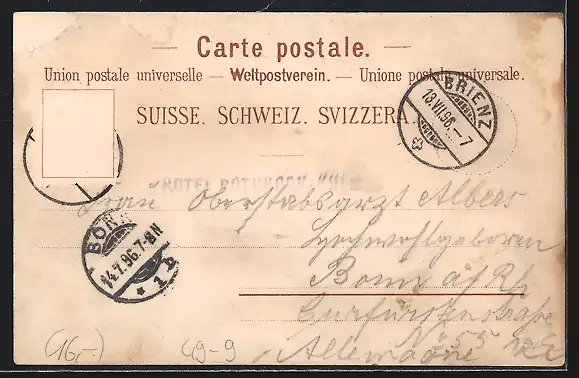 Carte postale.
Union postale universelle — Weltpostverein. — Unione postale universale.
SUISSE. SCHWEIZ. SVIZZERA.
BRIENZ
13.VII.96.–7
HOTEL ROTHHORN KULM
Frau Oberstabsarzt Albers
Hochwohlgeboren
BONN
14.7.96.7-8N
* 1 b
Bonn a/Rh
Curfürstenstraße
Allemagne
(16,-)
49-9